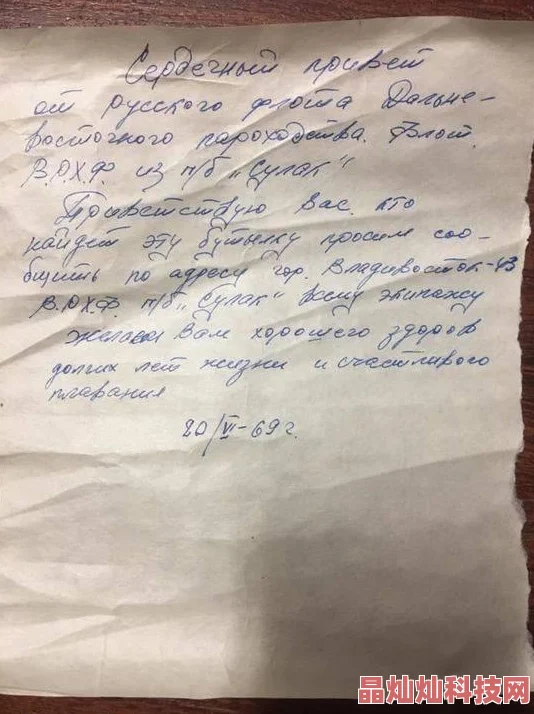 Сердечный привет
от русского флота Дальне-
восточного пароходства. Флот
В.О.Х.Ф. из п/б „Сулак“
Приветствую Вас. кто
найдет эту бутылку просим соо-
бщить по адресу гор. Владивосток-43
В.О.Х.Ф. п/б „Сулак“ всему экипажу
Желаем Вам хорошего здоров
долгих лет жизни и счастливого
плавания
20/VI-69г.
晶灿灿科技网